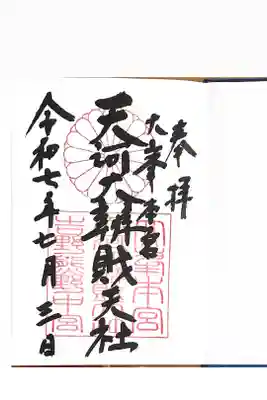 奉拝
大峯本宮
天河大辨財天社
令和七年七月三日
吉野熊野中宮